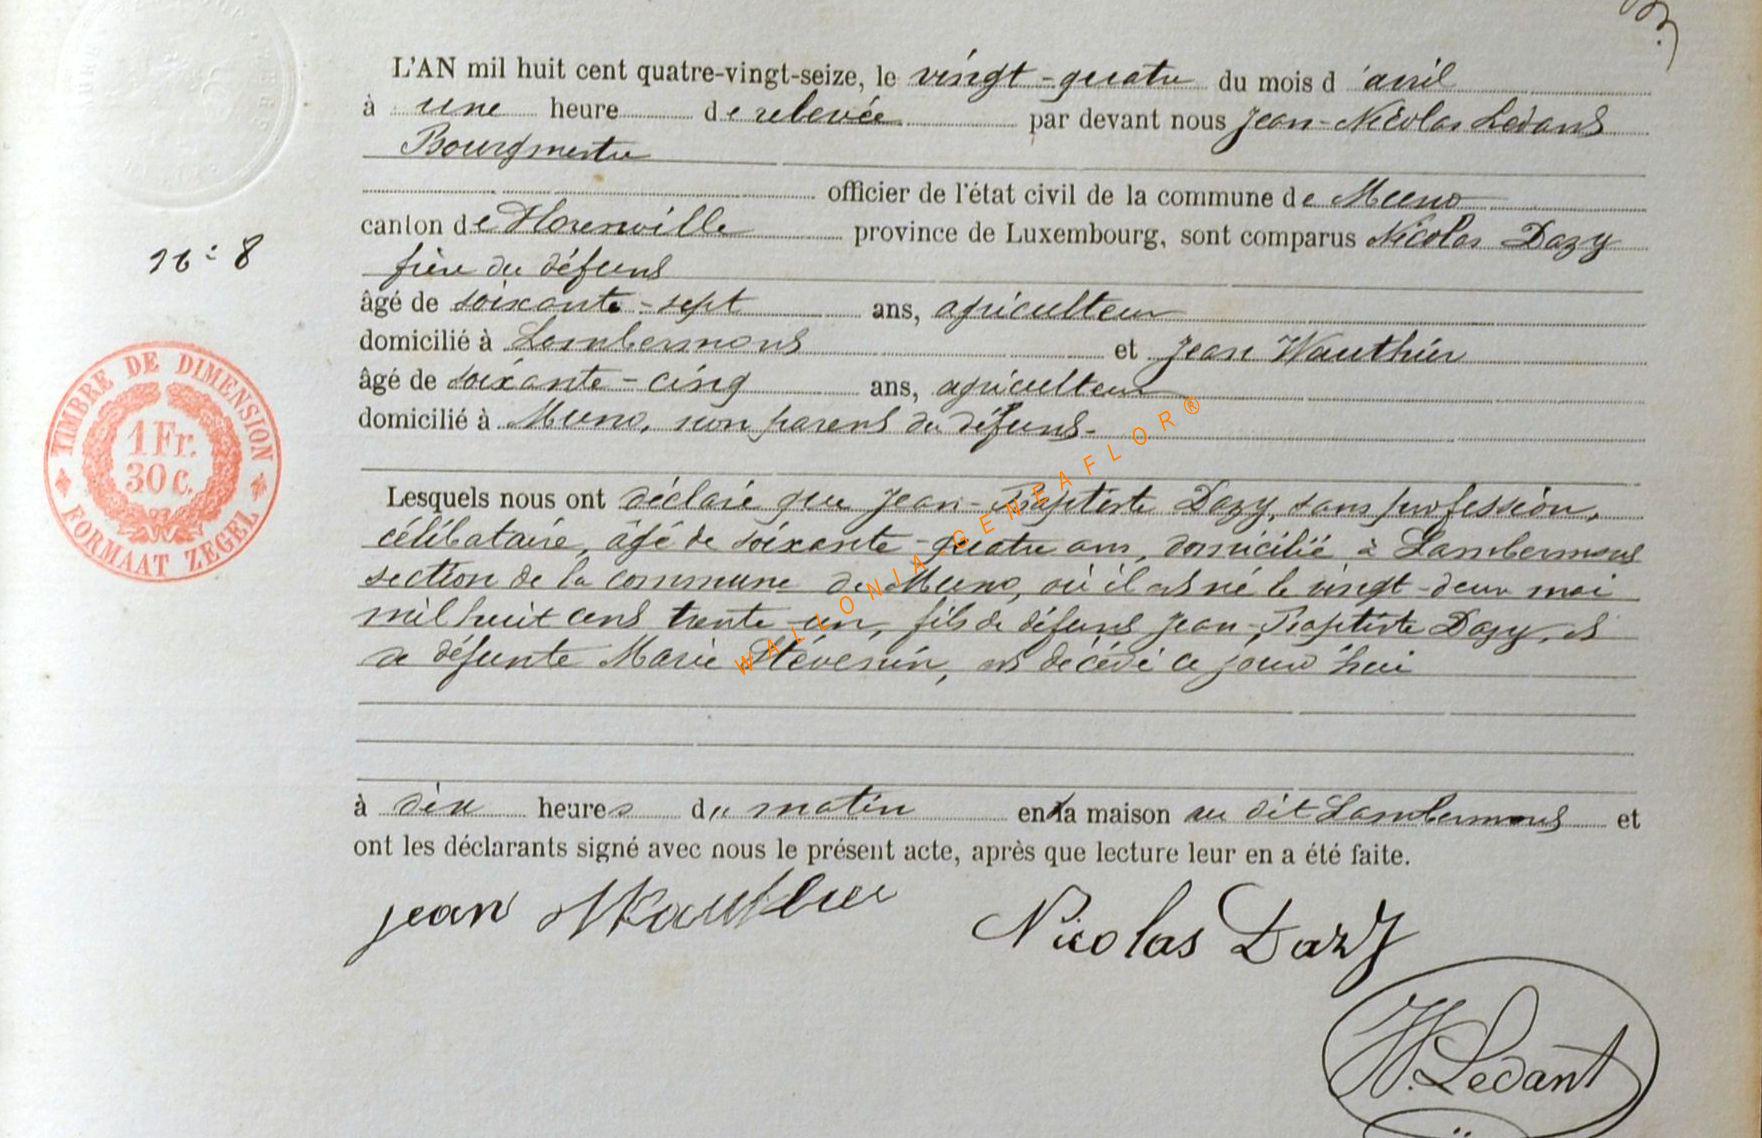 L'AN mil huit cent quatre-vingt-seize, le vingt-quatre du mois d'avril
à une heure de relevée par devant nous Jean-Nicolas Ledant
Bourgmestre
officier de l'état civil de la commune de Muno
canton de Florenville province de Luxembourg, sont comparus Nicolas Dazy
frère du défunt
âgé de soixante-sept ans, agriculteur
domicilié à Lambermont et Jean Wauthier
âgé de soixante-cinq ans, agriculteur
domicilié à Muno, non parent du défunt.
Lesquels nous ont déclaré que Jean-Baptiste Dazy, sans profession,
célibataire, âgé de soixante-quatre ans, domicilié à Lambermont
section de la commune de Muno, où il est né le vingt-deux mai
mil huit cent trente-un, fils de défunt Jean-Baptiste Dazy, et
de défunte Marie Stévenin, est décédé ce jourd'hui
à dix heures du matin en la maison au dit Lambermont et
ont les déclarants signé avec nous le présent acte, après que lecture leur en a été faite.
Jean Wauthier Nicolas Dazy
N. Ledant
8
TIMBRE DE DIMENSION
1 Fr.
30 C.
FORMAAT ZEGEL
WALLONIA-GENEAFLOR®